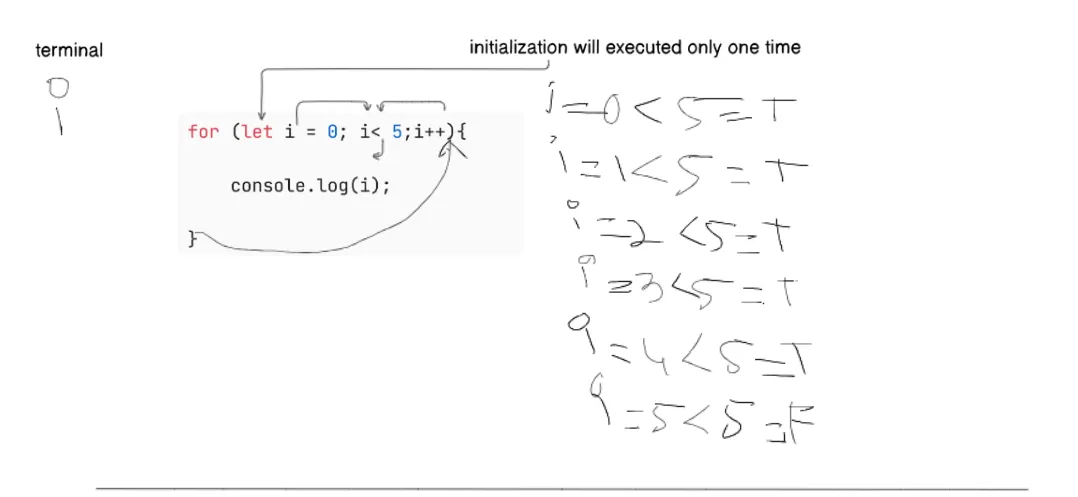 terminal
0
1
initialization will executed only one time
for (let i = 0; i< 5;i++){
console.log(i);
}
i=0<5=T
i=1<5=T
i=2<5=T
i=3<5=T
i=4<5=T
i=5<5=F